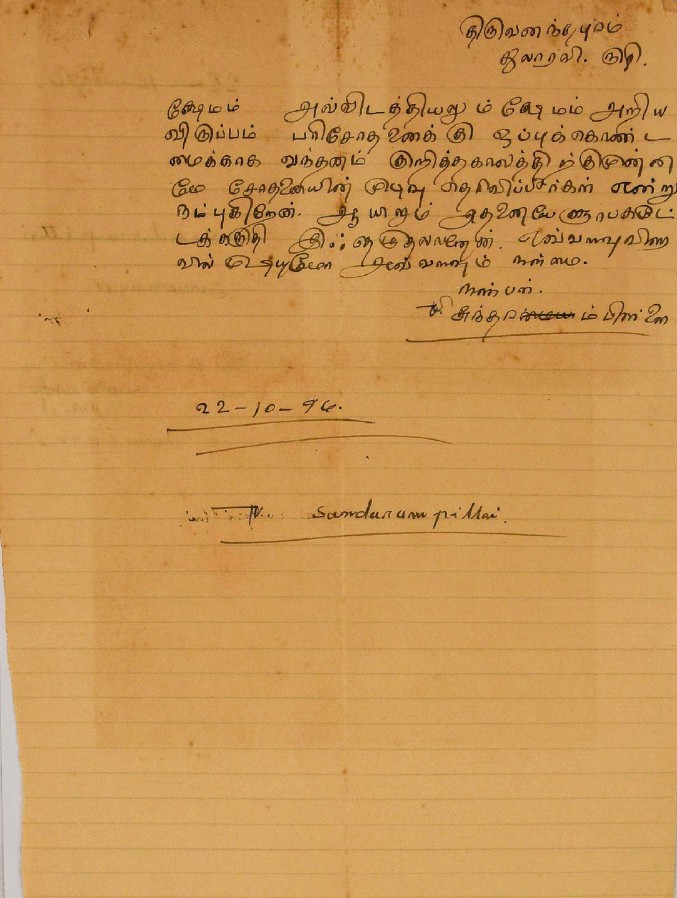 திருவனந்தபுரம்
க்ஷேமம் அவ்விடத்தியலும் க்ஷேமம் அறிய
விருப்பம் பரிசோதனைக்கு ஒப்புக்கொண்ட
மைக்காக வந்தனம் குறித்தகாலத்திற்குமுன்ன
மே சோதனையின் முடிவு தெரிவிப்பீர்கள் என்று
நம்புகிறேன். ஆயினும் அதனையே ஞாபகமூட்
டக்கருதி இஃதெழுதலானேன். எவ்வளவுவிரை
வில் முடியுமோ அவ்வளவும் நன்மை.
நண்பன்.
சுந்தரம்பிள்ளை
22-10-96.
P. Sundaram pillai.